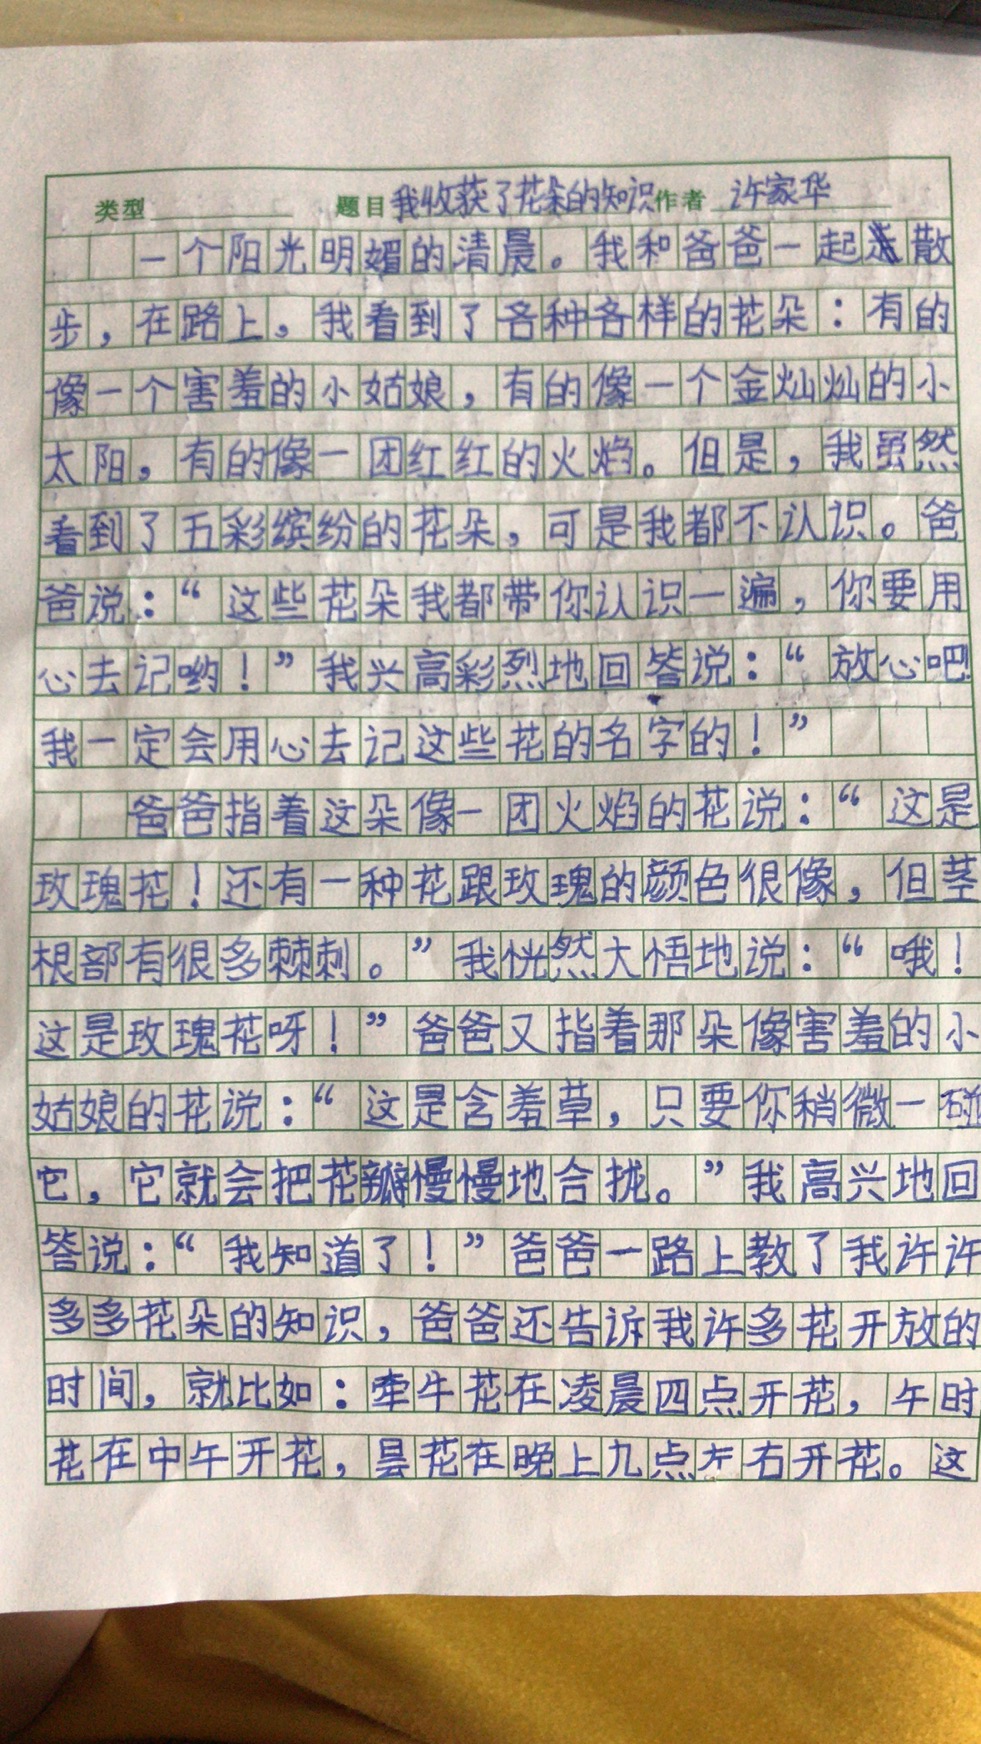 类型 题目 我收获了花朵的知识 作者 许家华
一个阳光明媚的清晨。我和爸爸一起散
步,在路上,我看到了各种各样的花朵:有的
像一个害羞的小姑娘,有的像一个金灿灿的小
太阳,有的像一团红红的火焰。但是,我虽然
看到了五彩缤纷的花朵,可是我都不认识。爸
爸说:“这些花朵我都带你认识一遍,你要用
心去记哟!”我兴高彩烈地回答说:“放心吧!
我一定会用心去记这些花的名字的!”
爸爸指着这朵像一团火焰的花说:“这是
玫瑰花!还有一种花跟玫瑰的颜色很像,但茎
根部有很多棘刺。”我恍然大悟地说:“哦!
这是玫瑰花呀!”爸爸又指着那朵像害羞的小
姑娘的花说:“这是含羞草,只要你稍微一碰
它,它就会把花瓣慢慢地合拢。”我高兴地回
答说:“我知道了!”爸爸一路上教了我许许
多多花朵的知识,爸爸还告诉我许多花开放的
时间,就比如:牵牛花在凌晨四点开花,午时
花在中午开花,昙花在晚上九点左右开花。这